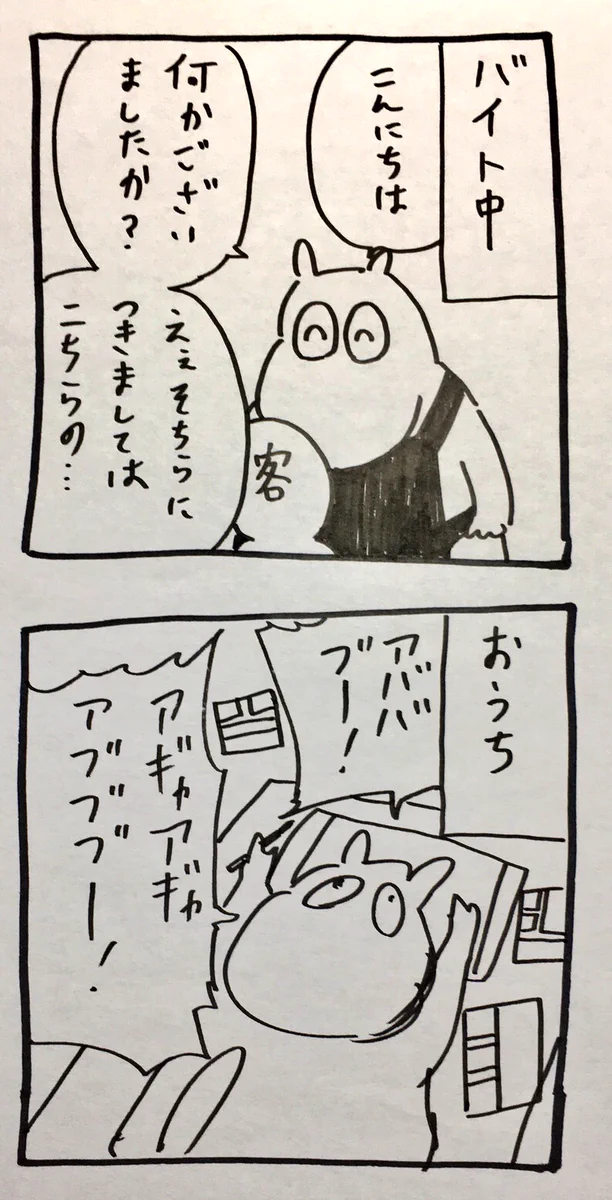 バイト中
こんにちは
何かござい
ましたか?
ええそちらに
つきましては
こちらの…
客
おうち
アババ
ブー!
アギャアギャ
アブブブー!